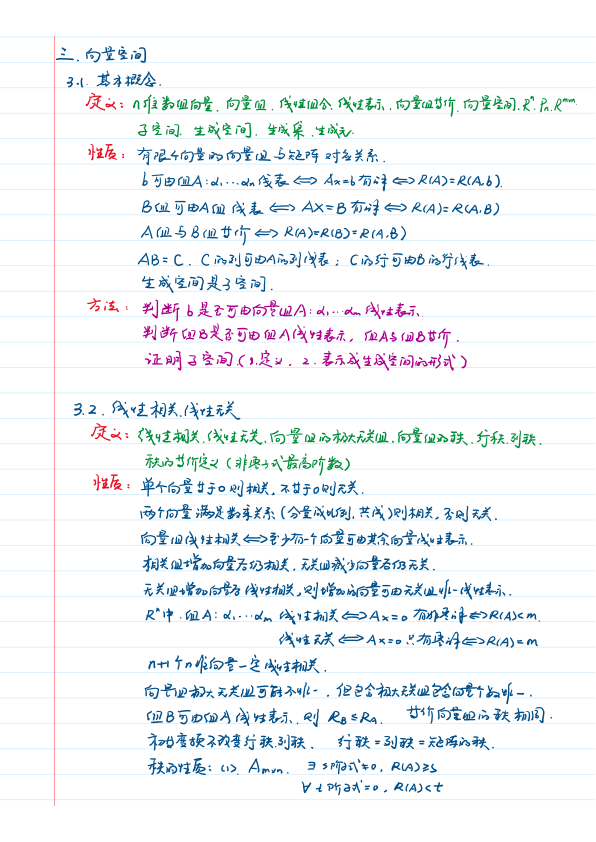 三. 向量空间
3.1. 基本概念.
定义: n维数组向量. 向量组. 线性组合. 线性表示. 向量组等价. 向量空间. Rⁿ. Pn. Rᵐˣⁿ.
子空间. 生成空间. 生成集. 生成元.
性质: 有限个向量的向量组与矩阵对应关系.
b可由组A: α₁, …αn线表 ⟺ Ax=b有解 ⟺ R(A)=R(A,b).
B组可由A组线表 ⟺ AX=B有解 ⟺ R(A)=R(A,B)
A组与B组等价 ⟺ R(A)=R(B)=R(A,B)
AB=C. C的列可由A的列线表; C的行可由B的行线表.
生成空间是子空间.
方法: 判断b是否可由向量组A: α₁, …αm线性表示.
判断组B是否可由组A线性表示, 组A与组B等价.
证明子空间(1.定义. 2.表示成生成空间的形式)
3.2. 线性相关.线性无关
定义: 线性相关.线性无关.向量组的极大无关组.向量组的秩. 行秩.列秩.
秩的等价定义(非零子式最高阶数)
性质: 单个向量等于0则相关, 不等于0则无关.
两个向量满足数乘关系(分量成比例,共线)则相关, 否则无关.
向量组线性相关⟺至少有一个向量可由其余向量线性表示.
相关组增加向量后仍相关, 无关组减少向量后仍无关.
无关组增加向量后线性相关, 则增加的向量可由无关组唯一线性表示.
Rⁿ中. 组A: α₁, …αm 线性相关⟺Ax=0 有非零解⟺R(A)<m.
线性无关⟺Ax=0只有零解⟺R(A)=m
n+1个n维向量一定线性相关.
向量组极大无关组可能不唯一, 但包含极大无关组包含向量个数唯一.
组B可由组A线性表示. 则 R_B≤R_A. 等价向量组的秩相同.
初等变换不改变行秩.列秩. 行秩=列秩=矩阵的秩.
秩的性质: (1). Am×n. ∃ s阶子式≠0, R(A)≥s
∀ t阶子式=0, R(A)<t